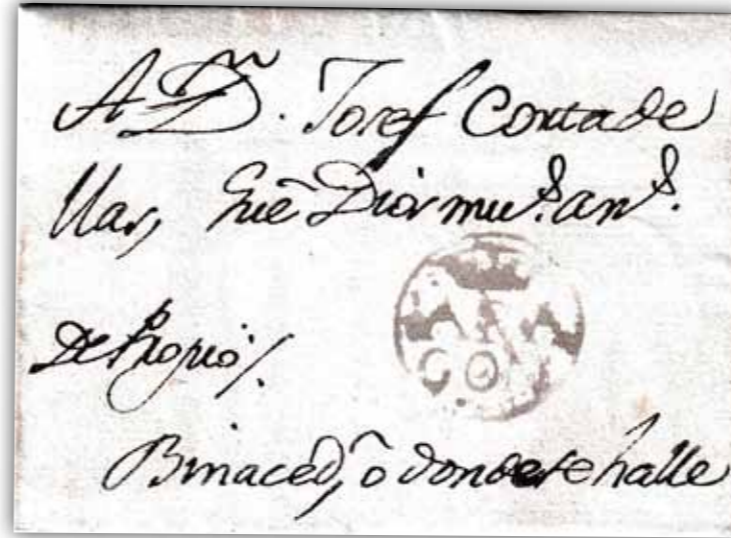 A Dn. Josef Cortade
llas, Gue Dios mus. ans.
ARA
GON
De Propio /.
Binaced, o donde se halle